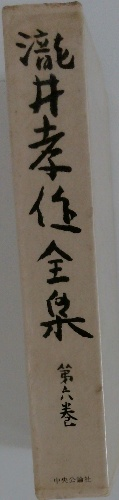 瀧井孝作全集
第六巻
中央公論社